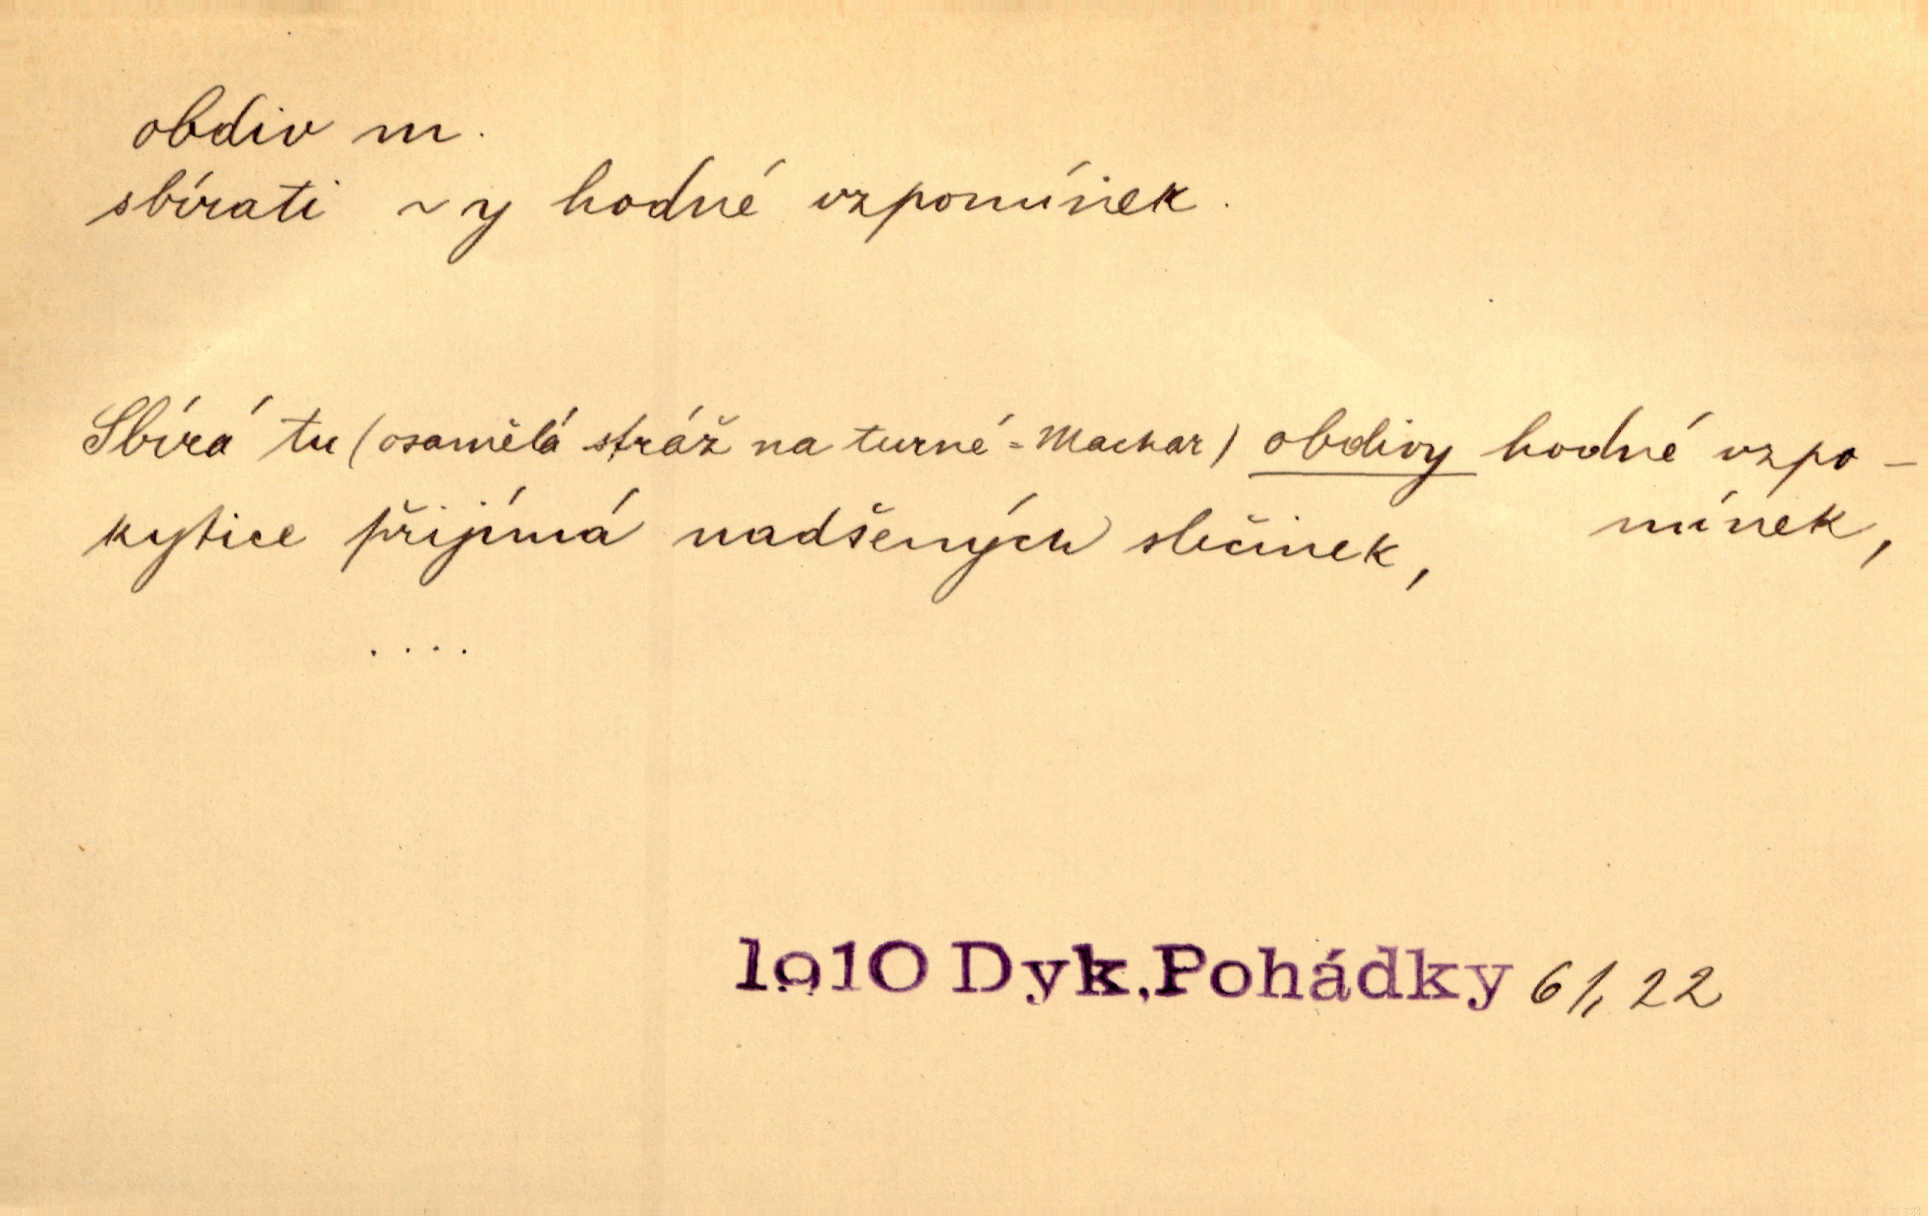 obdiv m.
sbírati ~y hodné vzpomínek.
Sbírá tu (osamělá stráž na turné = Machar) obdivy hodné vzpo-
mínek,
kytice přijímá nadšených slečinek,
....
1910 Dyk, Pohádky 61, 22